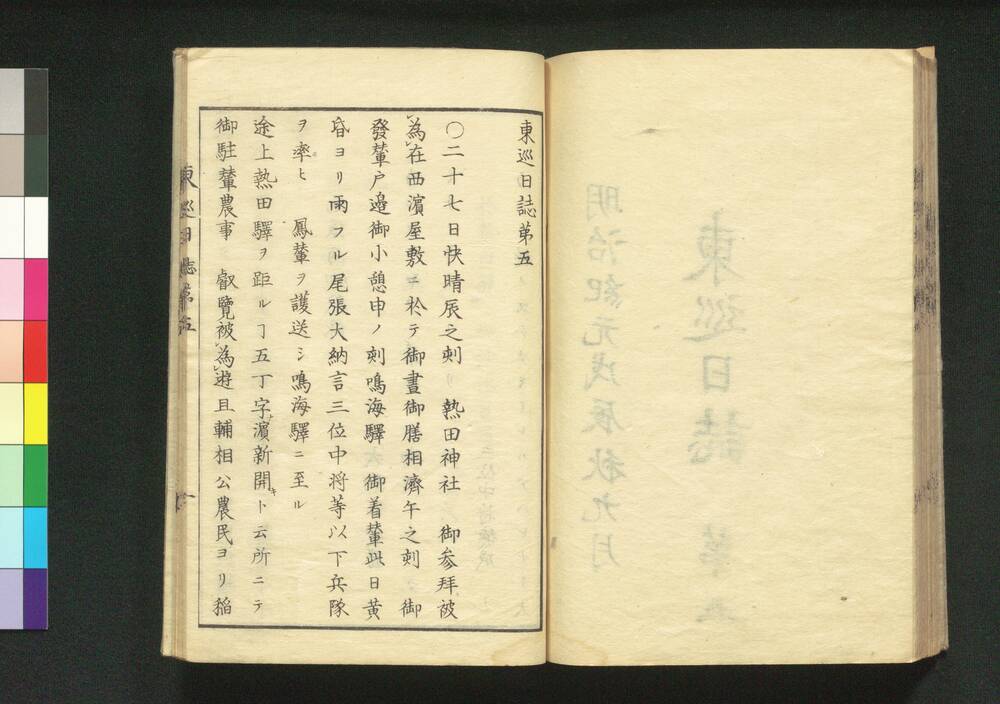 東巡日誌第五
〇二十七日快晴辰之刻　熱田神社　御参拝被
為在西濱屋敷ニ於テ御晝御膳相濟午之刻　御
發輦戸邉御小憩申ノ刻鳴海驛　御着輦此日黄
昏ヨリ雨フル尾張大納言三位中将等以下兵隊
ヲ率ヒ　鳳輦ヲ護送シ鳴海驛ニ至ル
途上熱田驛ヲ距ルヿ五丁字濱新開キト云所ニテ
御駐輦農事　叡覧被為遊且輔相公農民ヨリ稲
東巡日誌第五
明治紀元戊辰秋九月
東巡日誌　第五